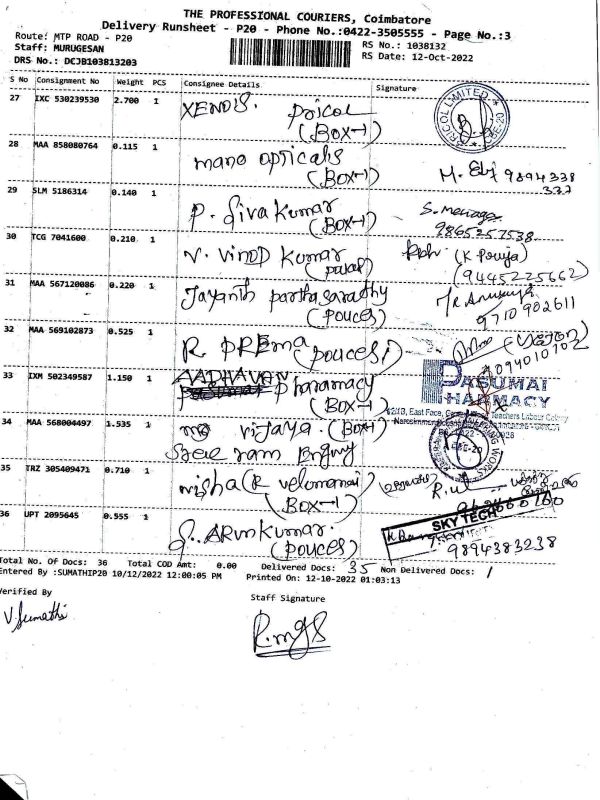 THE PROFESSIONAL COURIERS, Coimbatore
Delivery Runsheet - P20 - Phone No.:0422-3505555 - Page No.:3
Route: MTP ROAD - P20
RS No.: 1038132
Staff: MURUGESAN
RS Date: 12-Oct-2022
DRS No.: DCJB103813203
S No Consignment No Weight PCS Consignee Details Signature
27 IXC 530239530 2.700 1 XENDIS. Pricol
(BOX-1)
PRICOL LIMITED
28 MAA 858080764 0.115 1 mano opticals
(BOX-1)
9894338
337
29 SLM 5186314 0.140 1 P. Siva Kumar
(BOX-1)
S. Menaga
9865257538
30 TCG 7041600 0.210 1 V. Vinod Kumar
(K Pouja)
(9445225662)
31 MAA 567120086 0.220 1 Jayanth parthasarathy
(Pouces)
9710902611
32 MAA 569102873 0.525 1 R PREma (pouces)
33 IXM 502349587 1.150 1 AADHAVAN
pharamacy
(BOX-1)
PASUMAI
PHARMACY
34 MAA 568004497 1.535 1 vijaya. (BOX-1)
Sree ram Engwy
35 TRZ 305409471 0.710 1 nisha (R velomanai)
(BOX-1)
36 UPT 2095645 0.555 1 G. ARUN kumar.
(Pouces)
SKY TECH
9894383238
Total No. Of Docs: 36 Total COD Amt: 0.00 Delivered Docs: 35 Non Delivered Docs: 1
Entered By :SUMATHIP20 10/12/2022 12:00:05 PM Printed On: 12-10-2022 01:03:13
Verified By
Staff Signature
V. Sumathi
R.mgS